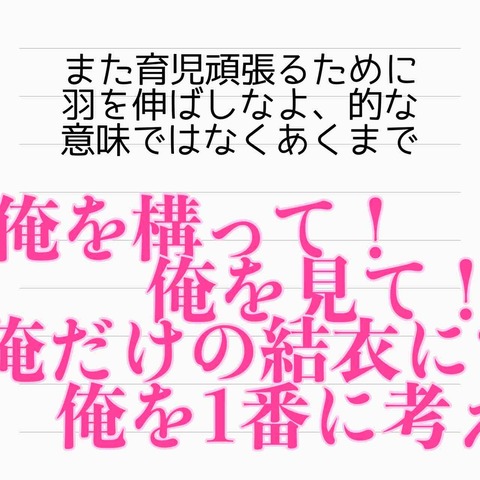 また育児頑張るために
羽を伸ばしなよ、的な
意味ではなくあくまで
俺を構って！
俺を見て！
俺だけの結衣に
俺を1番に考